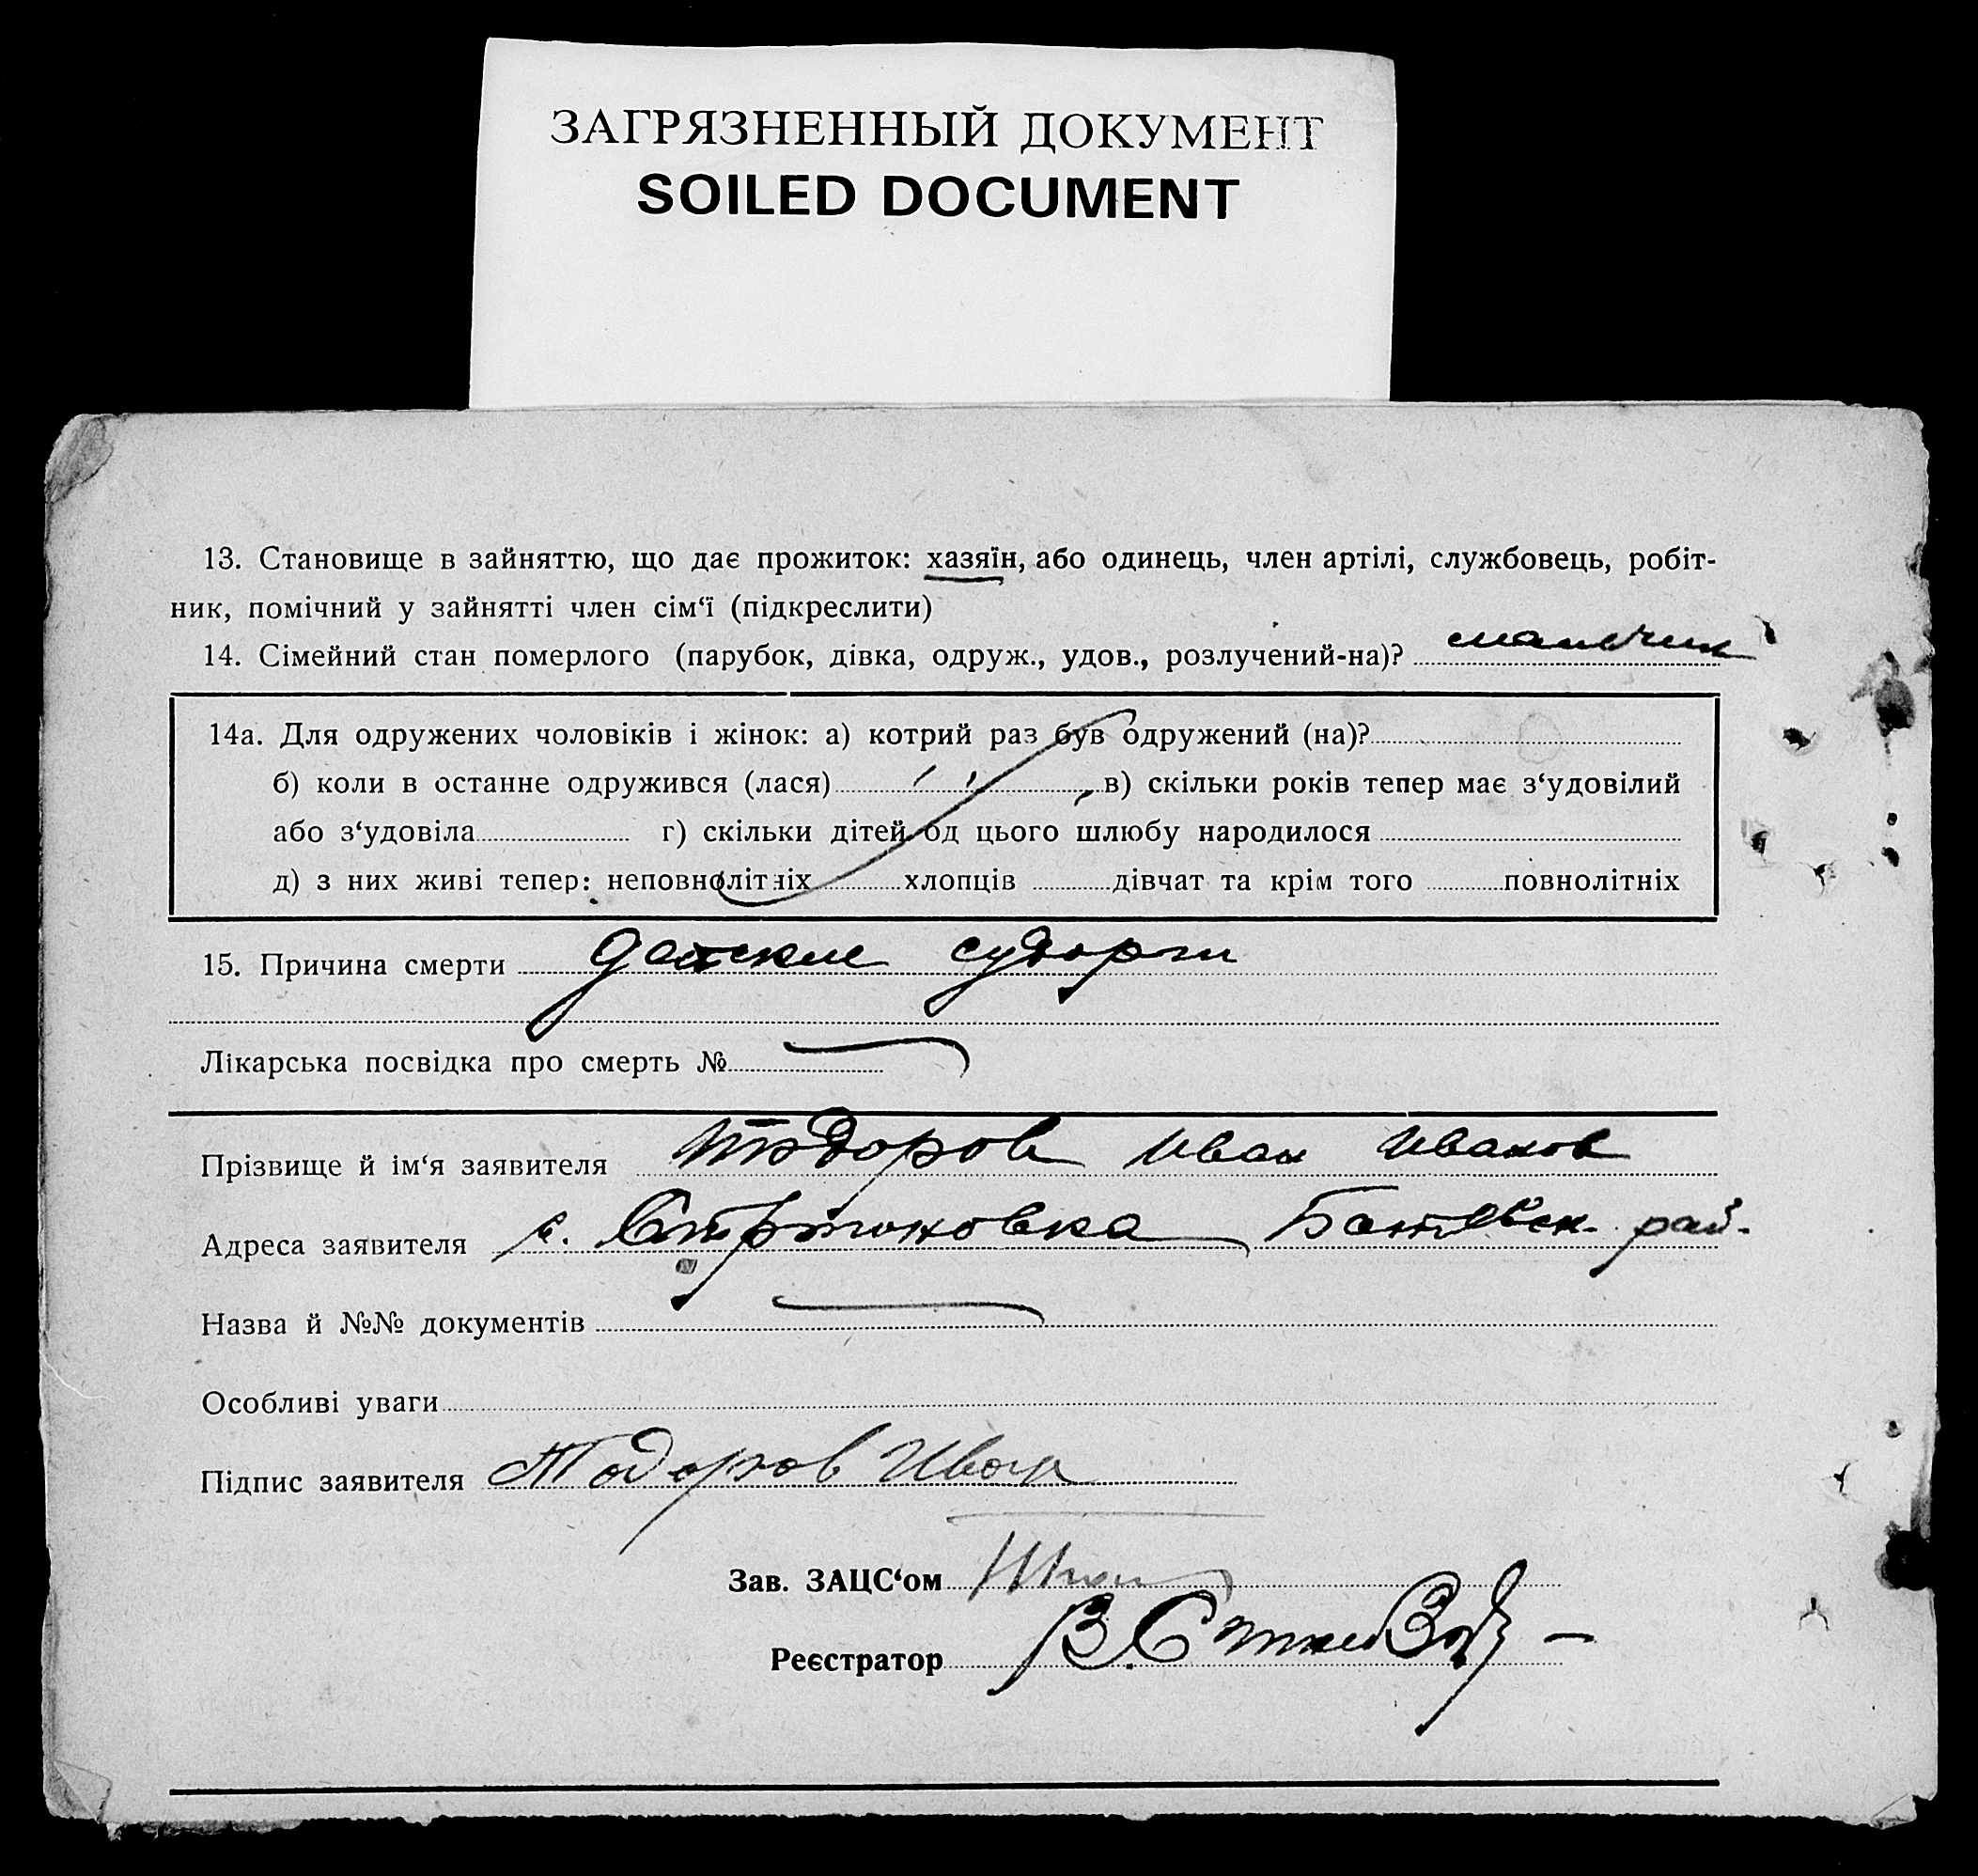 ЗАГРЯЗНЕННЫЙ ДОКУМЕНТ
SOILED DOCUMENT
13. Становище в зайняттю, що дає прожиток: хазяїн, або одинець, член артілі, службовець, робіт-
ник, помічний у зайнятті член сім‘ї (підкреслити)
14. Сімейний стан померлого (парубок, дівка, одруж., удов., розлучений-на)? мальчик
14а. Для одружених чоловіків і жінок: а) котрий раз був одружений (на)?
б) коли в останнє одружився (лася) в) скільки років тепер має з‘удовілий
або з‘удовіла г) скільки дітей од цього шлюбу народилося
д) з них живі тепер: неповнолітніх хлопців дівчат та крім того повнолітніх
15. Причина смерти детские судорги
Лікарська посвідка про смерть №
Прізвище й ім‘я заявителя Тодоров Иван Иванов
Адреса заявителя с. рай-
Назва й №№ документів
Особливі уваги
Підпис заявителя Тодоров Иван
Зав. ЗАЦС‘ом
Реєстратор